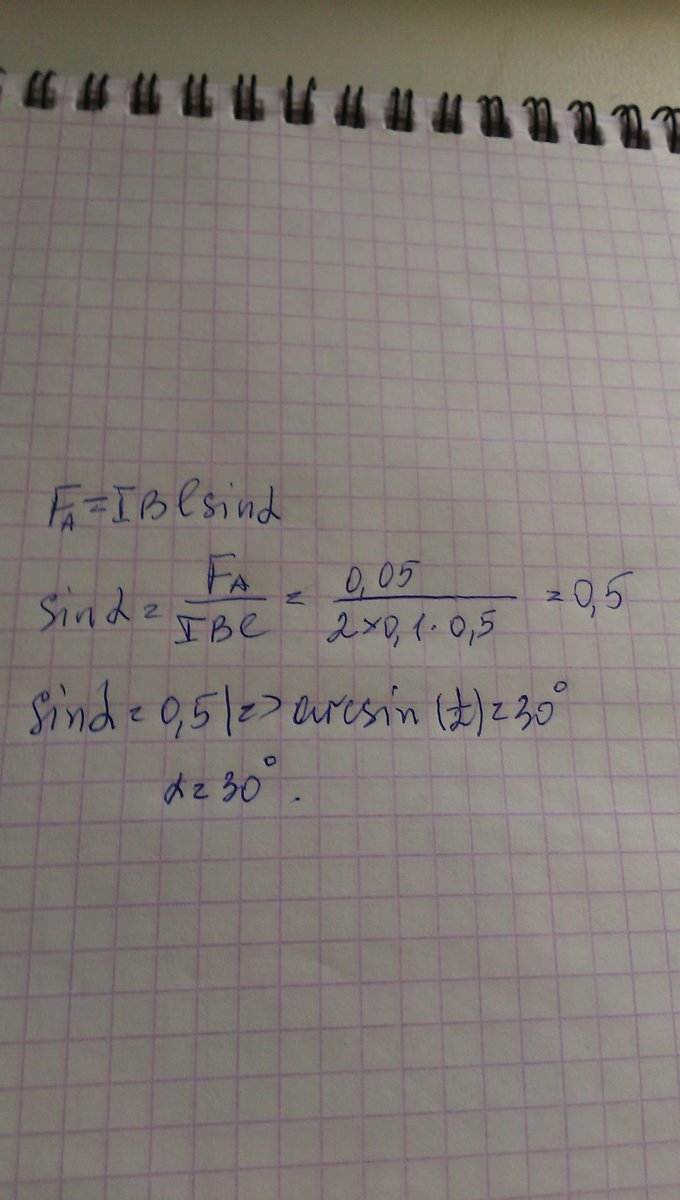 F_A = I B l sin α
sin α = F_A / I B l = 0,05 / 2 × 0,1 · 0,5 = 0,5
sin α = 0,5 | => arcsin (1/2) = 30°
α = 30°.